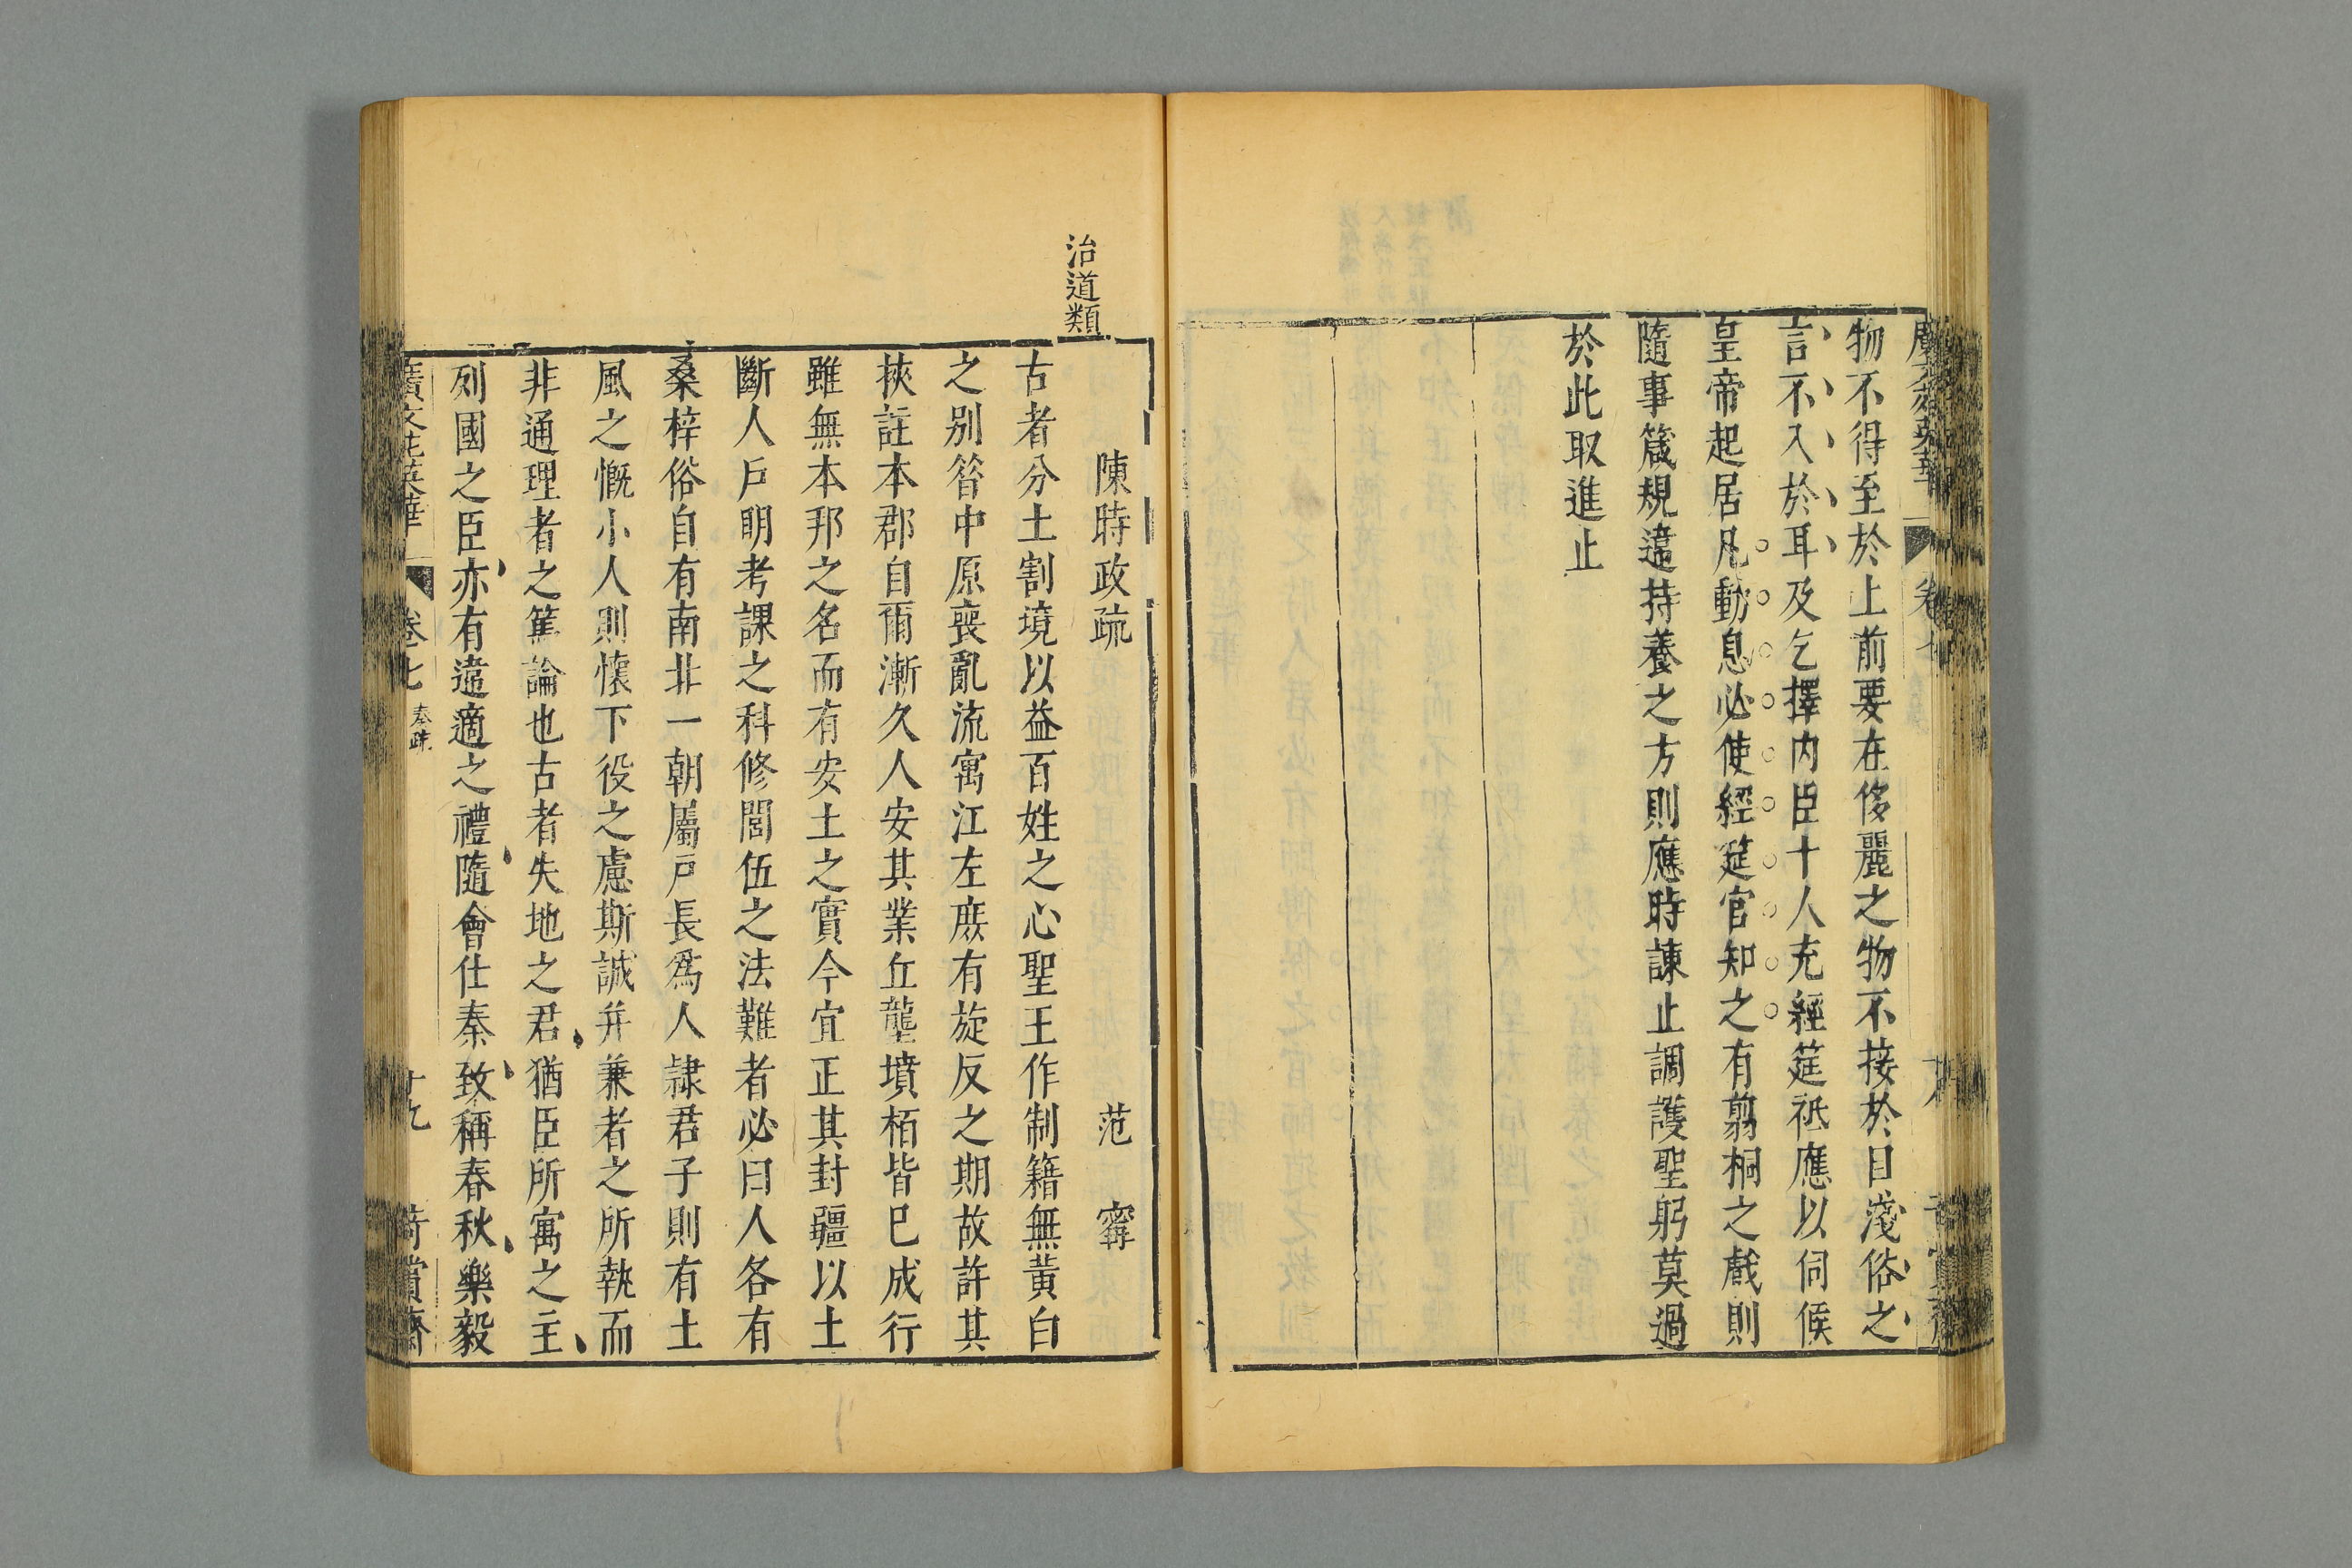 物不得至於上前要在侈麗之物不接於目淺俗之
言不入於耳及乞擇内臣十人充經筵祗應以伺候
皇帝起居凡動息必使經筵官知之有翦桐之戲則
隨事箴規違持養之方則應時諫止調護聖躬莫過
於此取進止
治道類
陳時政疏 范寗
古者分土割境以益百姓之心聖王作制籍無黃白
之別昝中原喪亂流寓江左庶有旋反之期故許其
挾註本郡自爾漸久人安其業丘壟墳栢皆已成行
雖無本邦之名而有安土之實今宜正其封疆以土
斷人戶明考課之科修閭伍之法難者必曰人各有
桑梓俗自有南北一朝屬戶長爲人隷君子則有土
風之慨小人則懷下役之慮斯誠并兼者之所執而
非通理者之篤論也古者失地之君猶臣所寓之主
列國之臣亦有違適之禮隨會仕秦致稱春秋樂毅
廣文苑英華 卷七 奏疏 十九 奇賞齋